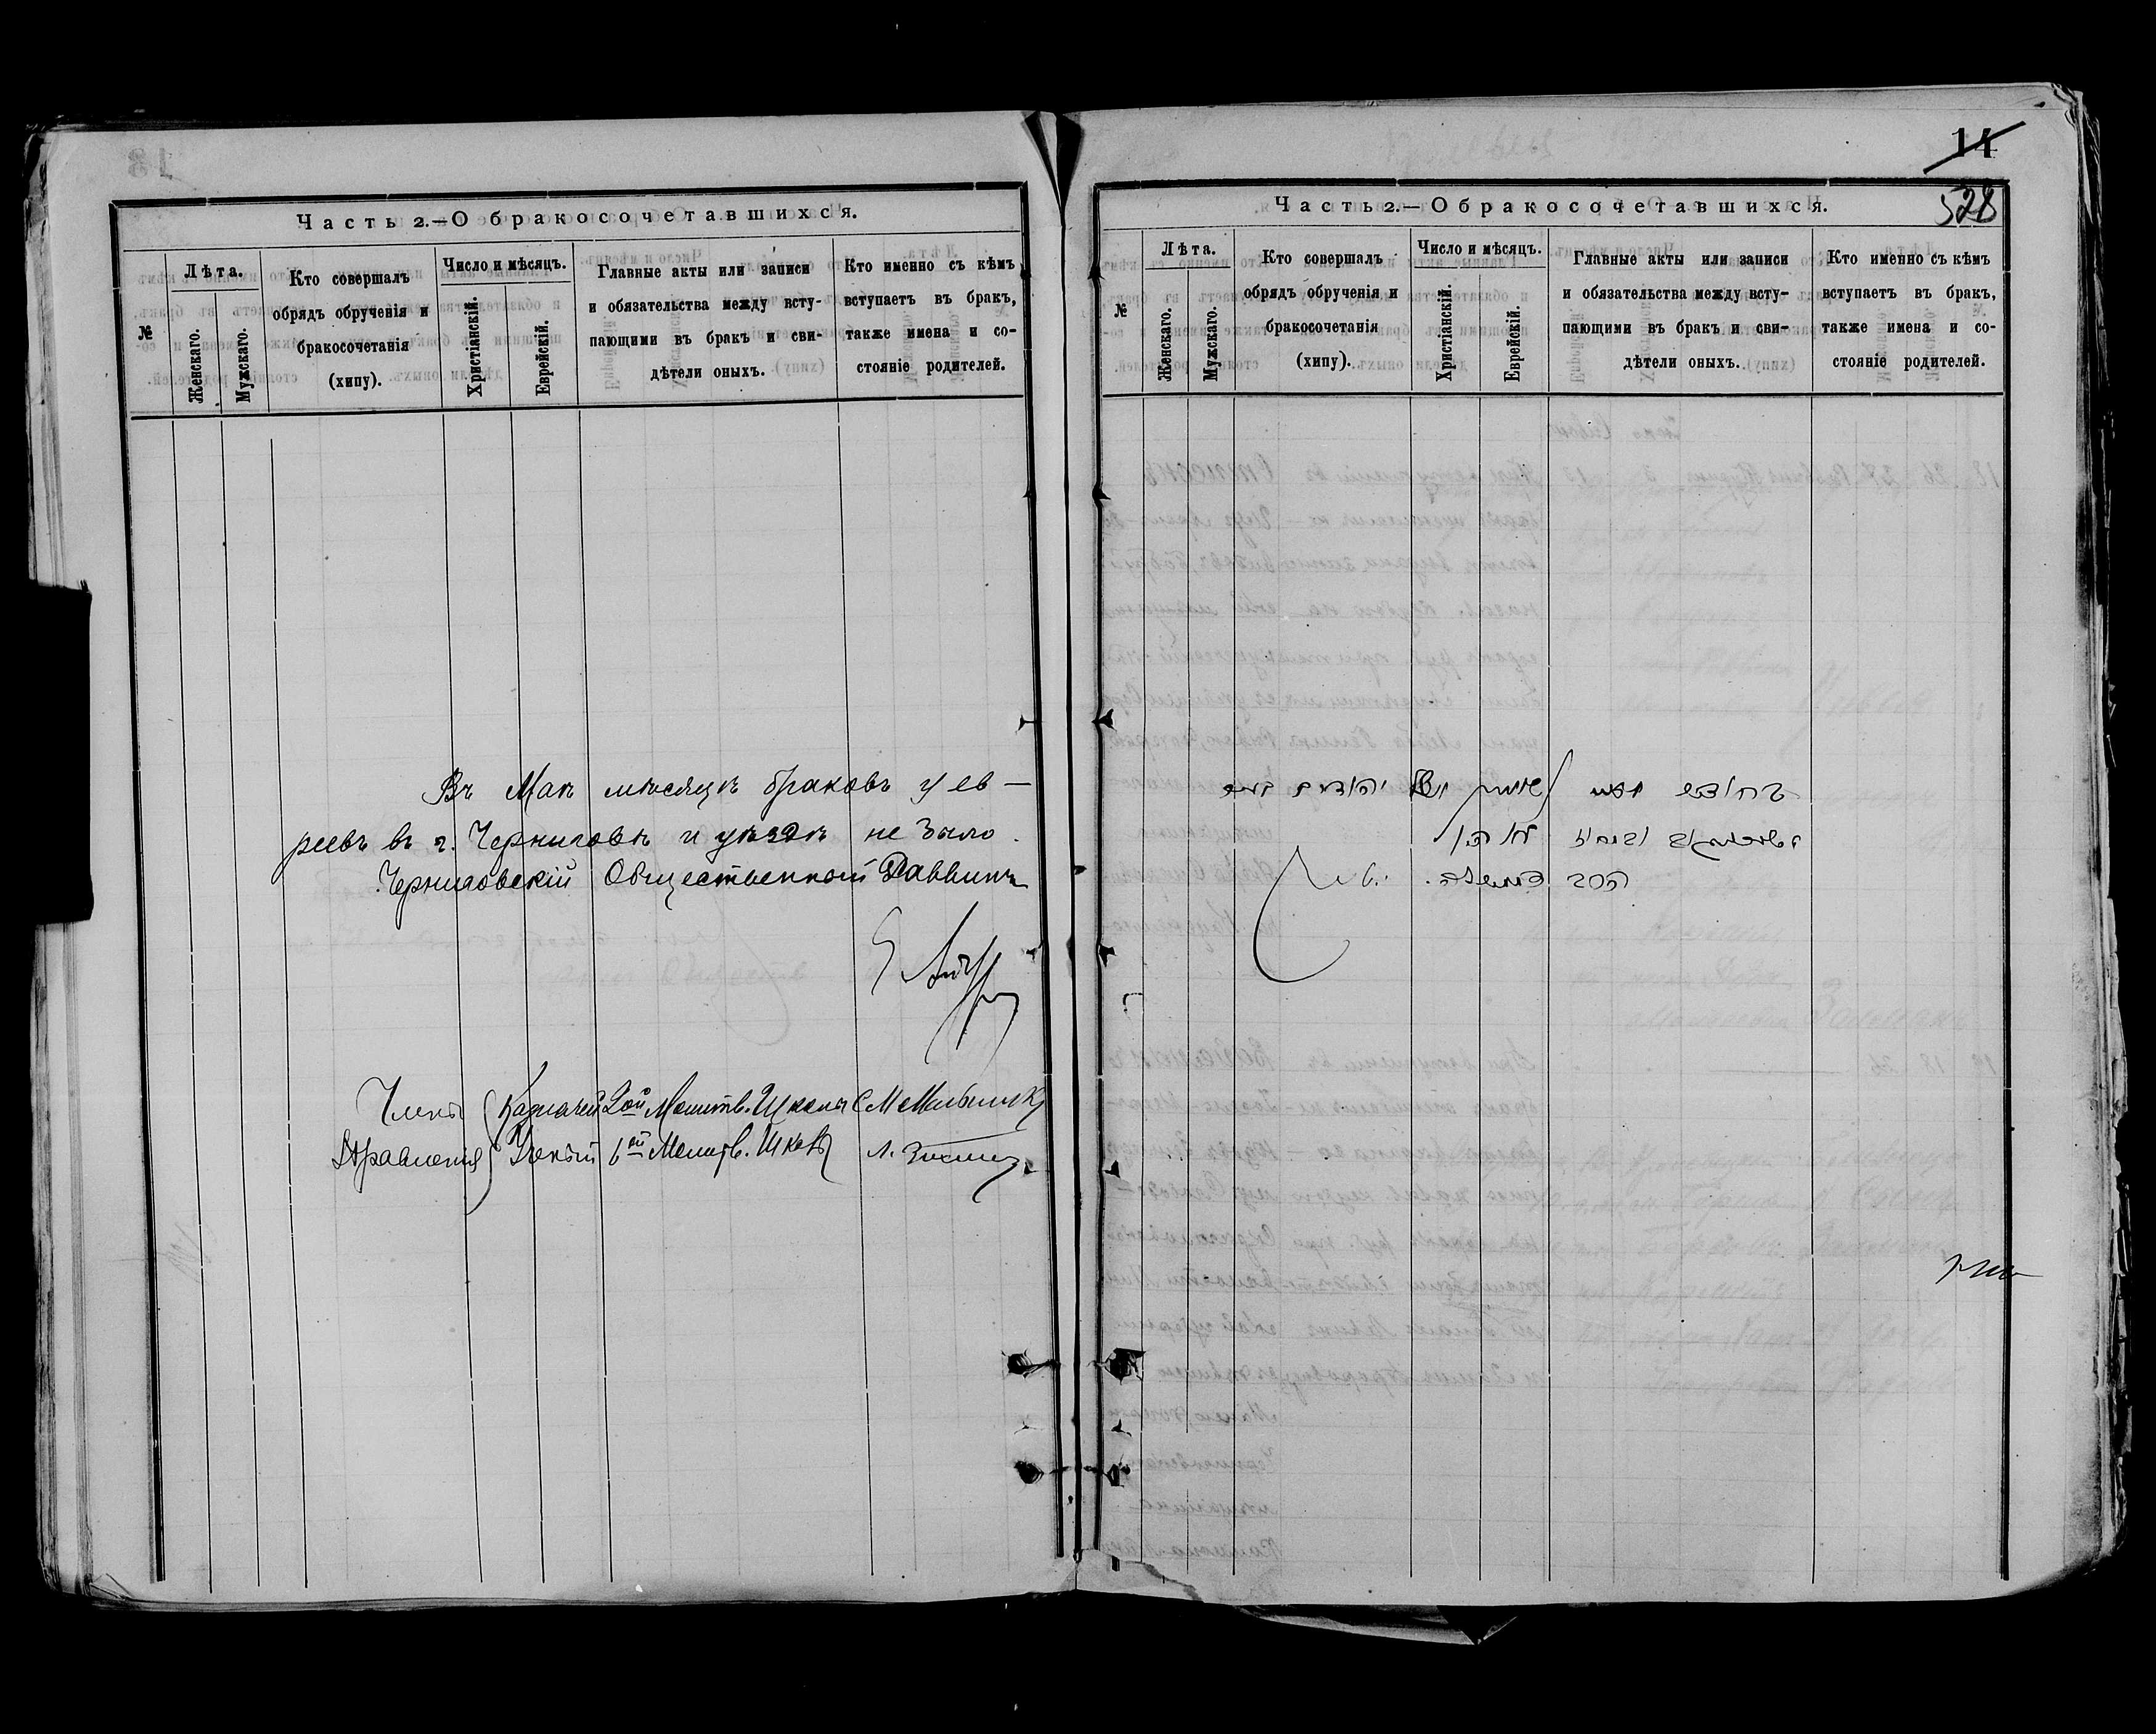 Часть 2.—О бракосочетавшихся.
№
Лѣта.
Женскаго.
Мужскаго.
Кто совершалъ
обрядъ обрученія и
бракосочетанія
(хипу).
Число и мѣсяцъ.
Христіанскій.
Еврейскій.
Главные акты или записи
и обязательства между всту-
пающими въ бракъ и сви-
дѣтели оныхъ.
Кто именно съ кѣмъ
вступаетъ въ бракъ,
также имена и со-
стояніе родителей.
Въ Маѣ мѣсяцѣ браковъ у ев-
реевъ въ г. Черниговѣ и уѣздѣ не было.
Черниговскій Общественный Раввинъ
Члены Казначей 2ой Молитв. Школы
Правленія Ученый 6ой Молитв. Школы
14
528
Часть 2.—О бракосочетавшихся.
№
Лѣта.
Женскаго.
Мужскаго.
Кто совершалъ
обрядъ обрученія и
бракосочетанія
(хипу).
Число и мѣсяцъ.
Христіанскій.
Еврейскій.
Главные акты или записи
и обязательства между всту-
пающими въ бракъ и сви-
дѣтели оныхъ.
Кто именно съ кѣмъ
вступаетъ въ бракъ,
также имена и со-
стояніе родителей.
בחודש מאי
הרב